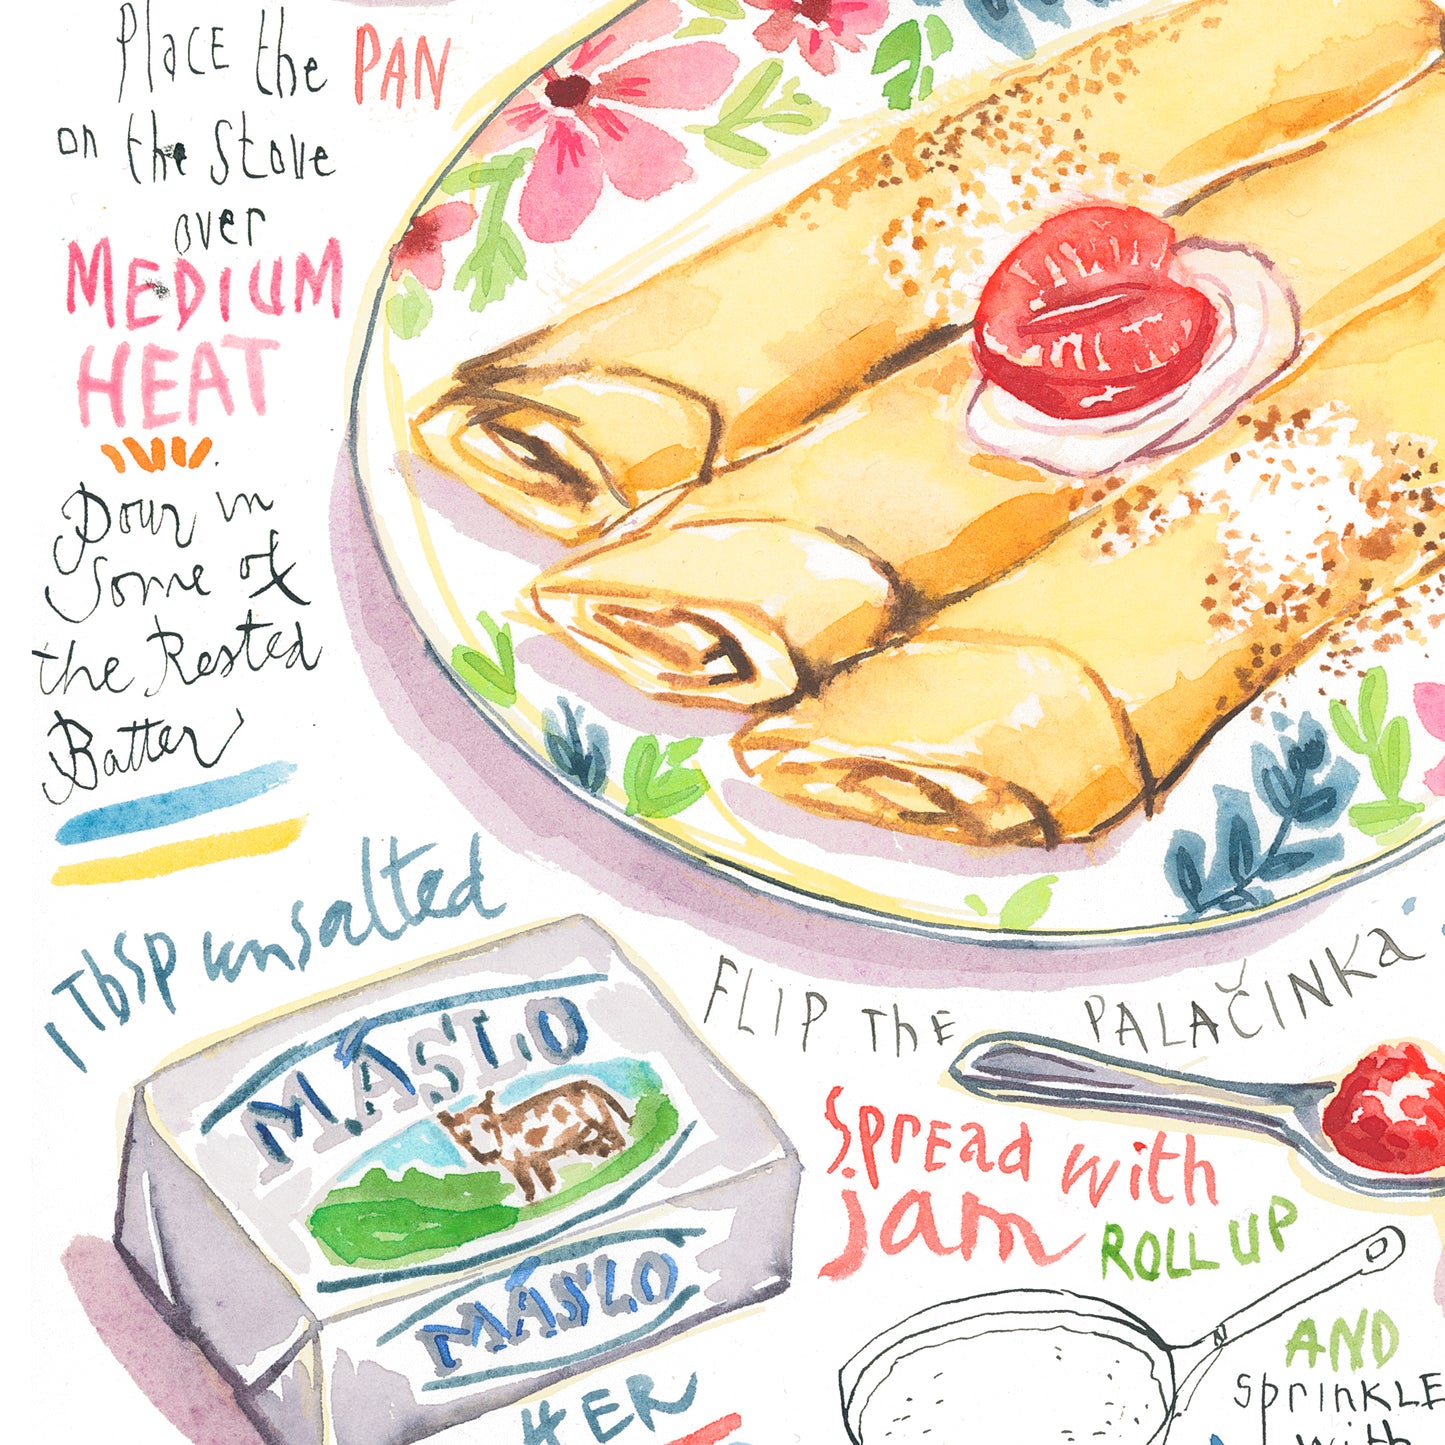 Place the PAN
on the Stove
over
MEDIUM
HEAT
Pour in
Some of
the Rested
Batter
1 Tbsp unsalted
MÁSLO
MÁSLO
FLIP The PALAČINKA
Spread with
jam ROLL UP
AND
Sprinkle
with